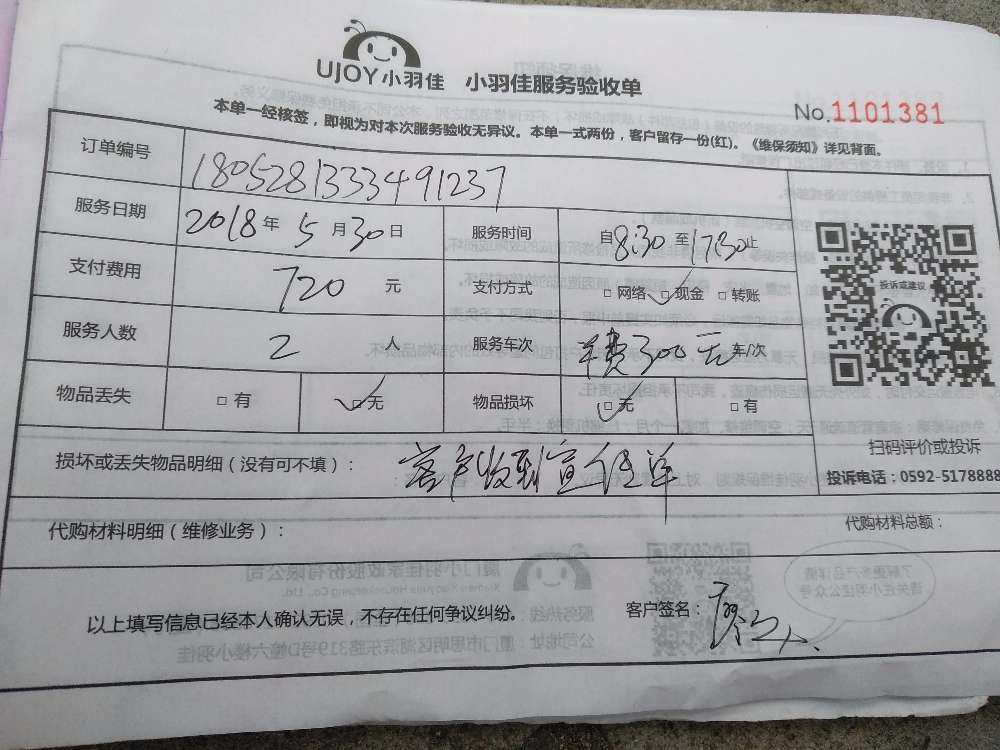 UJOY小羽佳 小羽佳服务验收单
No.1101381
本单一经核签，即视为对本次服务验收无异议。本单一式两份，客户留存一份(红)。《维保须知》详见背面。
订单编号 1805281333491237
服务日期 2018年5月30日 服务时间 自8:30至17:30止
支付费用 720元 支付方式 □网络 □现金 □转账
投诉或建议
服务人数 2人 服务车次 车费300元车/次
物品丢失 □有 □无 物品损坏 □无 □有
扫码评价或投诉
投诉电话：0592-5178888
损坏或丢失物品明细（没有可不填）： 客户收到宣传单
代购材料明细（维修业务）： 代购材料总额：
以上填写信息已经本人确认无误，不存在任何争议纠纷。 客户签名：